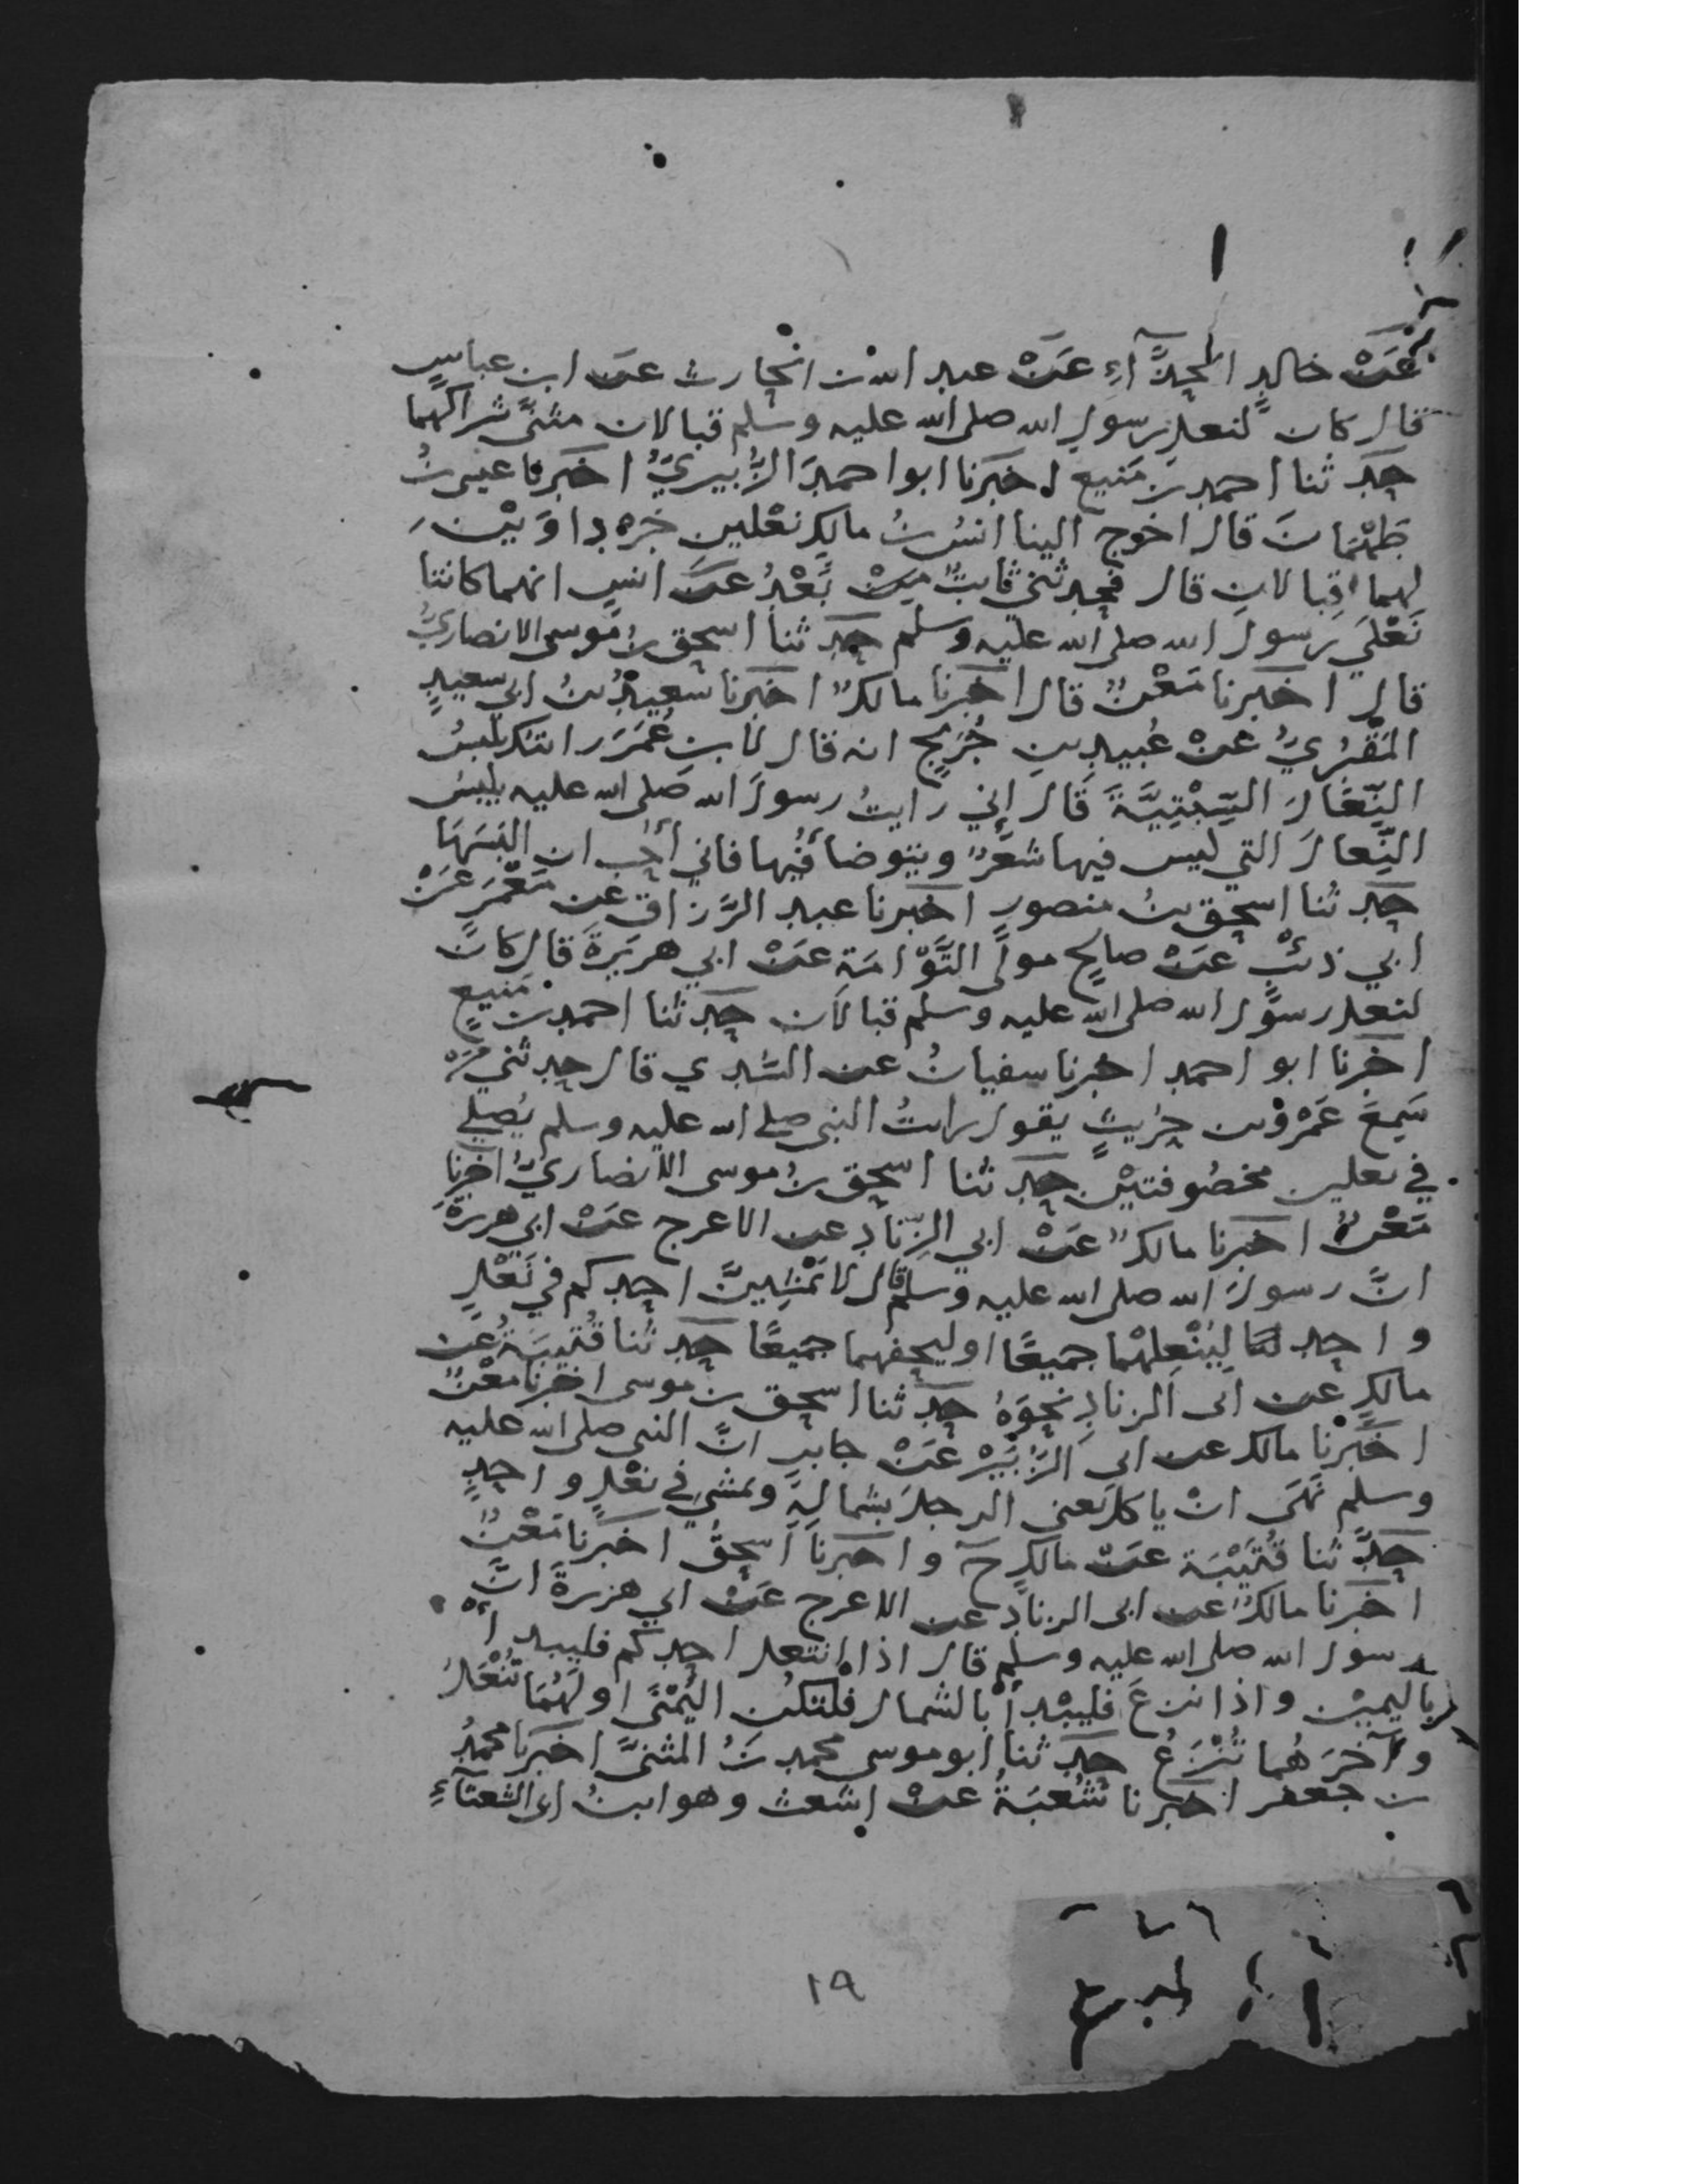 عَنْ خالدٍ الحذَّآءِ عَنْ عبد الله بن الحارث عن ابن عباسٍ
قال كان لنعل رسول الله صلى الله عليه وسلم قبالان مثنًى شراكهما
حدثنا احمد بن مَنيع اخبَرنا ابو احمدَ الزُّبيريُّ اخبَرنا عيسى بنُ
طَهْمَانَ قال اخرج الينا انسُ بنُ مالكٍ نعْلين جَرْداوَيْن
لهما قبالانِ قال فحدثني ثابتٌ مِنْ بَعْدُ عَنْ انسٍ انهما كانتا
نَعْلَي رسول الله صلى الله عليه وسلم حدثنا اسحق بنُ مُوسى الانصاريُّ
قال اخبَرنا مَعْنٌ قال اخبَرنا مالكٌ اخبَرنا سَعِيدُ بنُ ابي سعيدٍ
المَقْبُرِيُّ عنْ عُبيدِ بنِ جُرَيجٍ انه قال لابن عُمَرَ رايتك تلبسُ
النِّعَالَ السِّبْتِيَّةَ قَالَ إِني رايتُ رسولَ الله صَلى الله عليه يلبسُ
النِّعالَ التي ليس فيها شعَرٌ ويتوضأ فيها فاني أُحِب ان البَسَهَا
حدثنا اسحق بنُ منصورٍ اخبرنا عبد الرَّزاق عن مَعْمَرَ عَنْ
ابي ذئبٍ عَنْ صالحٍ مولَى التَّوْامَةِ عَنْ ابي هريَرةَ قال كانَ
لنعل رسول الله صلى الله عليه وسلم قبالان حدثنا احمد بن مَنيعٍ
اخبَرنا ابو احمد اخبرنا سفيانُ عن السُّدي قال حدثني مَنْ
سَمِعَ عَمْرو بن حُرَيثٍ يقول رايتُ النبي صلى الله عليه وسلم يُصلي
في نعلين مخصُوفتيْن حدثنا اسحق بنُ موسى الانصاريُّ اخبرنا
مَعْنٌ اخبَرنا مالكٌ عَنْ ابي الزِّنادِ عن الاعرج عَنْ ابي هريرة
انَّ رسولَ الله صلى الله عليه وسلم قال لا يَمْشِيَنَّ احدكم في نَعْلٍ
واحد لِيُنْعِلْهُما جميعًا او ليحفهما جميعًا حدثنا قُتَيبَةُ عن
مالكٍ عن ابى الزنادِ نحوَهُ حدثنا اسحق بن موسى اخبرنا مَعْنٌ
اخبَرْنا مالك عن ابى الزُّبَيْر عَنْ جابر انَّ النبي صلى الله عليه
وسلم نَهَى انْ ياكل يَعنى الرجلَ بشمالهِ ويمشى في نعْلٍ واحدٍ
حدَّثنا قُتَيْبَة عَن مالك ح واخبَرنا اسحقُ اخبَرنا مَعْنٌ
اخبَرنا مالكٌ عن ابى الزناد عن الاعرج عَنْ ابي هريرة انَّ
رسول الله صلى الله عليه وسلم قال اذا انتعل احدكم فليبدأ
باليميْن واذا نزعَ فليبْدأ بالشمال فلْتكُن اليُمْنَى اولَهُمَا تُنْعَلُ
وآخرَهُما تُنْزَعُ حدثنا ابو موسى محمد بنُ المثنَّى اخبَرنا محمدُ
بن جعفر اخبَرنا شُعْبَةُ عَنْ اشعث وهو ابنُ ابى الشعثآءِ
١٩